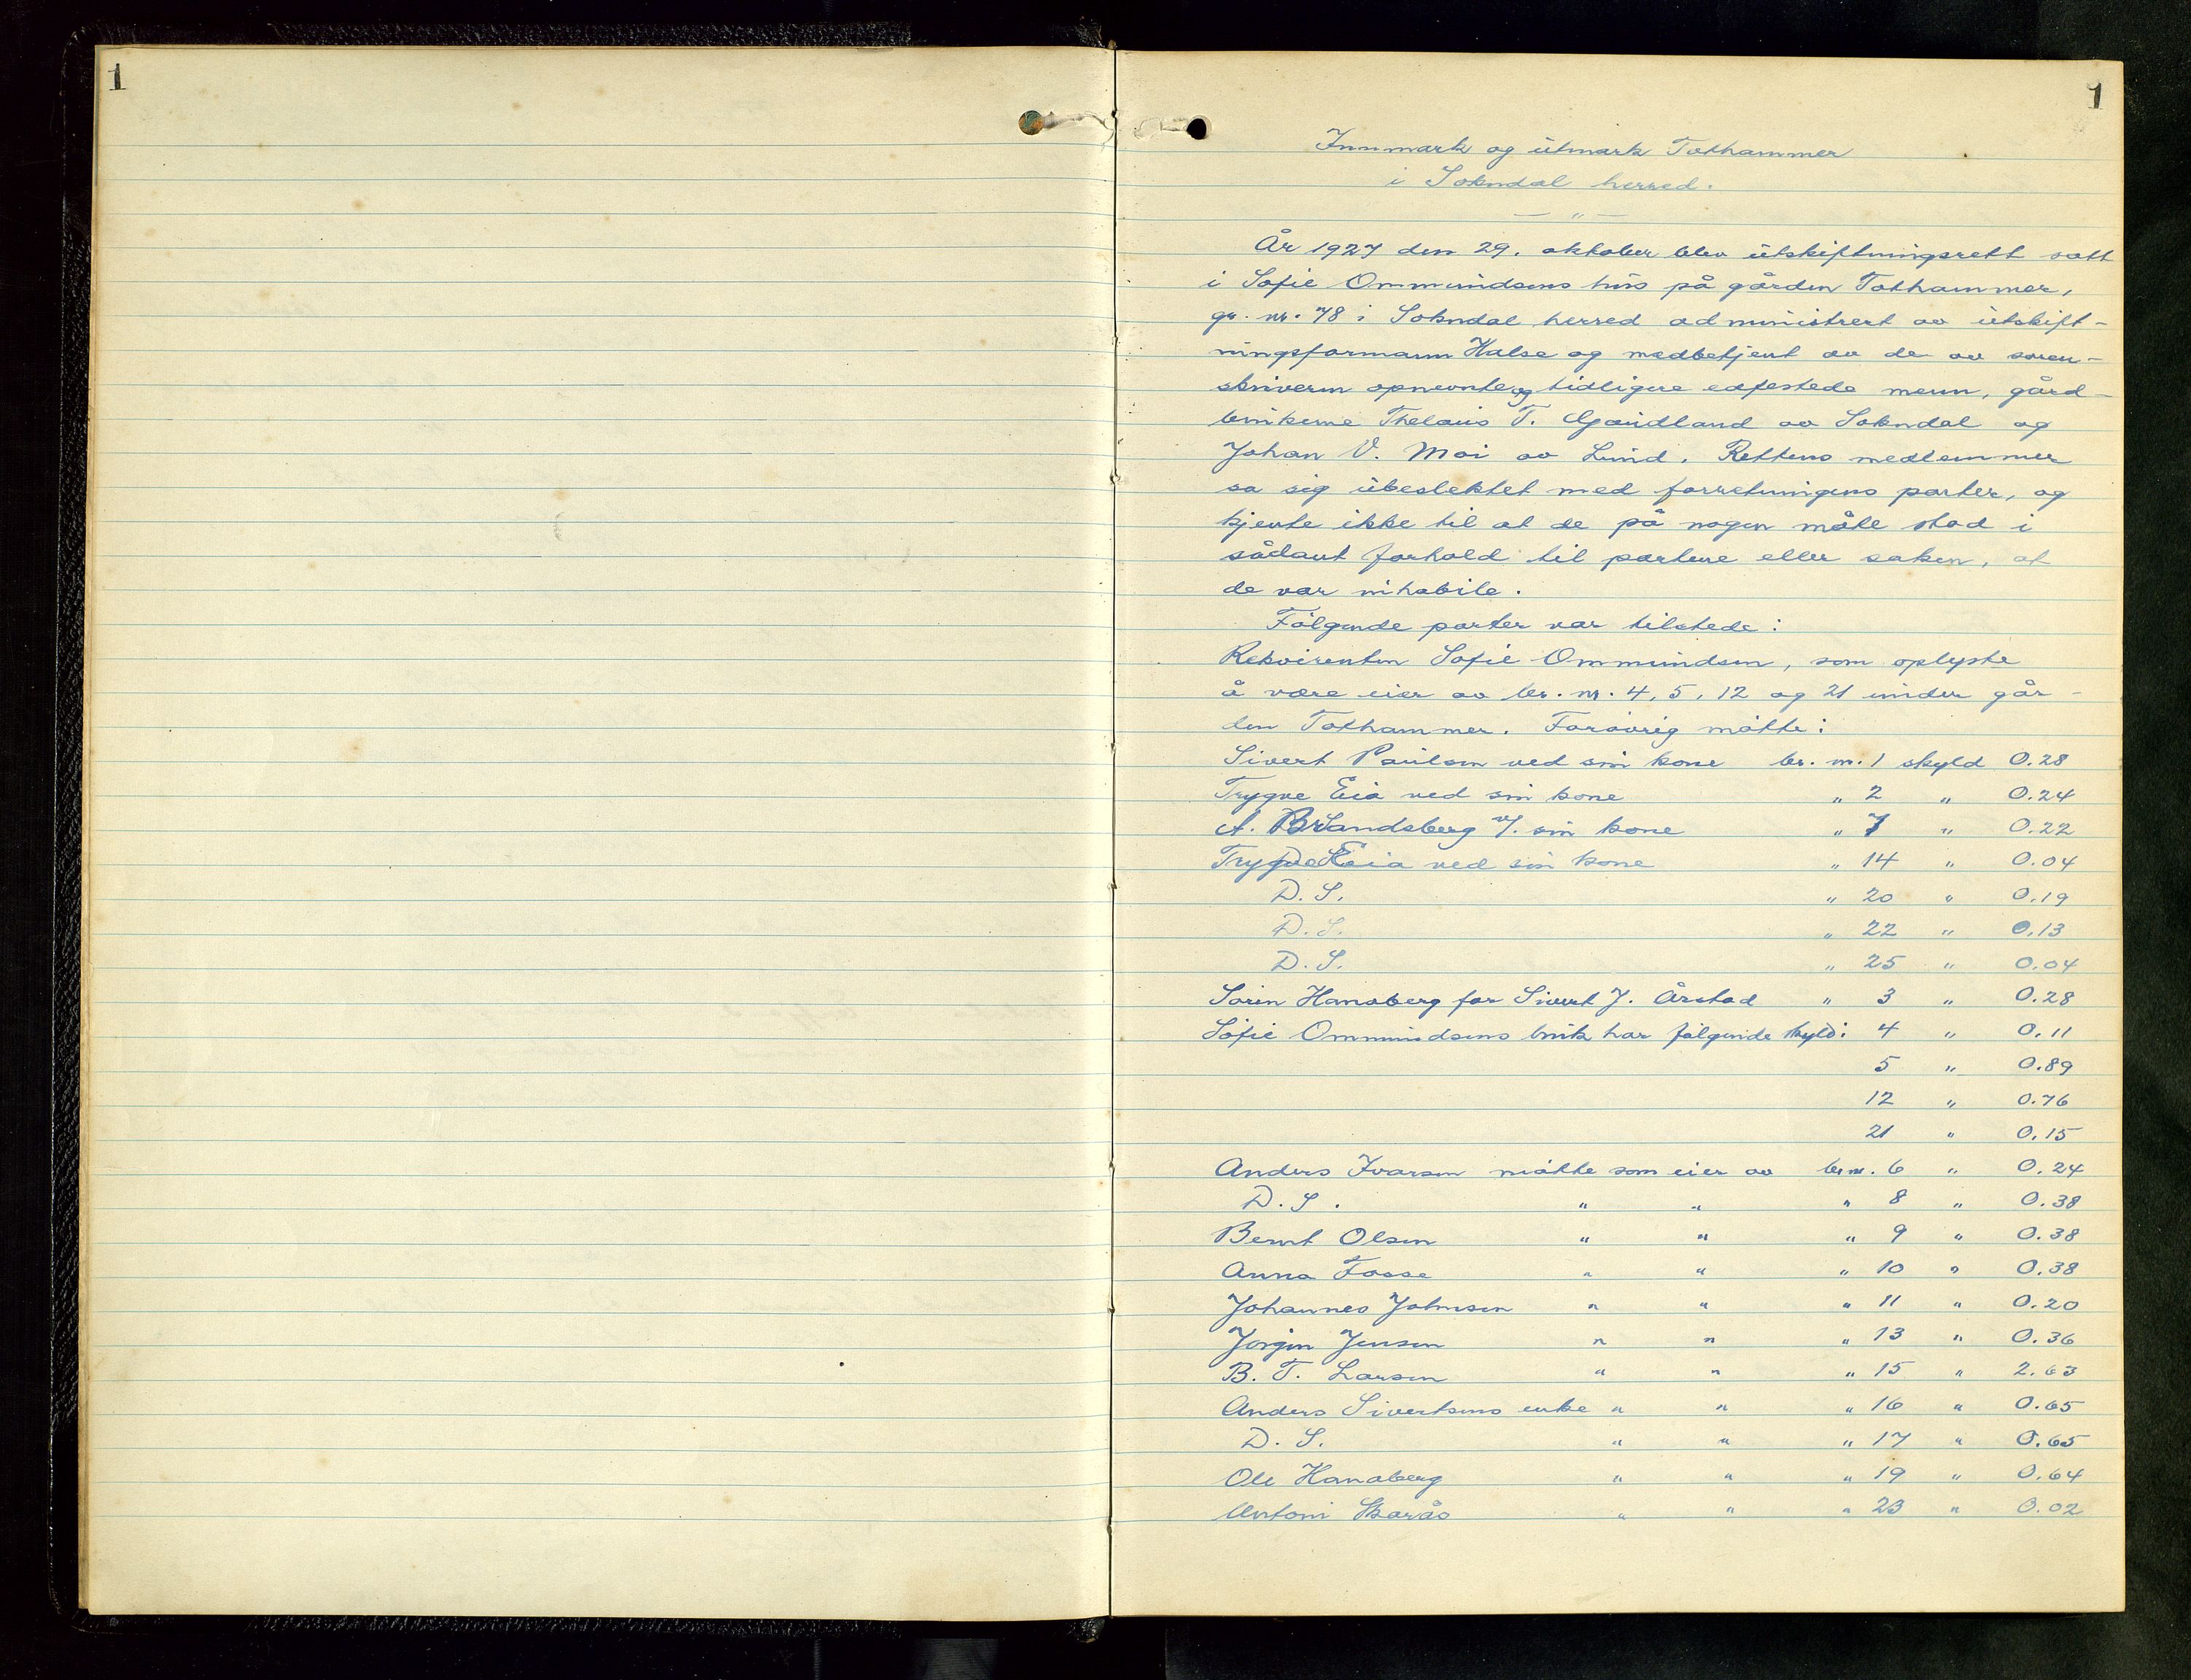 1
1
Innmark og utmark Tothammer
i Sokndal herred.
— " —
År 1927 den 29. oktober blev utskiftningsrett satt
i Sofie Ommundsens hus på gården Tothammer,
gr. nr. 78 i Sokndal herred administrert av utskift-
ningsformann Halse og medbetjent av de av soren-
skriveren opnevnte og tidligere edfestede menn, gård-
brukerne Thelaus T. Gaudland av Sokndal og
Johan V. Moi av Lund. Rettens medlemmer
sa sig ubeslektet med forretningens parter, og
kjente ikke til at de på nogen måte stod i
sådant forhold til partene eller saken, at
de var inhabile.
Følgende parter var tilstede:
Rekvirenten Sofie Ommundsen, som oplyste
å være eier av br. nr. 4, 5, 12 og 21 under går-
den Tothammer. Forøvrig møtte:
Sivert Paulsen ved sin kone br. nr. 1 skyld 0.28
Trygve Eia ved sin kone " 2 " 0.24
A. Br Sandsberg v/ sin kone " 7 " 0.22
Trygve Eia ved sin kone " 14 " 0.04
D. S. " 20 " 0.19
D. S. " 22 " 0.13
D. S. " 25 " 0.04
Søren Hansberg for Sivert J. Årstad " 3 " 0.28
Sofie Ommundsens bruk har følgende skyld: 4 " 0.11
5 " 0.89
12 " 0.76
21 " 0.15
Anders Ivarsen møtte som eier av br nr. 6 " 0.24
D. S. " " " 8 " 0.38
Bernt Olsen " " " 9 " 0.38
Anna Fosse " " " 10 " 0.38
Johannes Johnsen " " " 11 " 0.20
Jørgen Jensen " " " 13 " 0.36
B. T. Larsen " " " 15 " 2.63
Anders Sivertsens enke " " " 16 " 0.65
D. S. " " " 17 " 0.65
Ole Hanaberg " " " 19 " 0.64
Antoni Skarås " " " 23 " 0.02